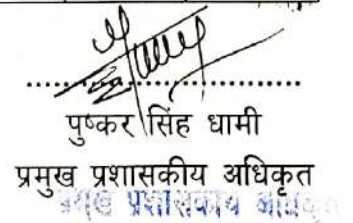 पुष्कर सिंह धामी
प्रमुख प्रशासकीय अधिकृत
प्रमुख प्रशासकीय अधिकृत